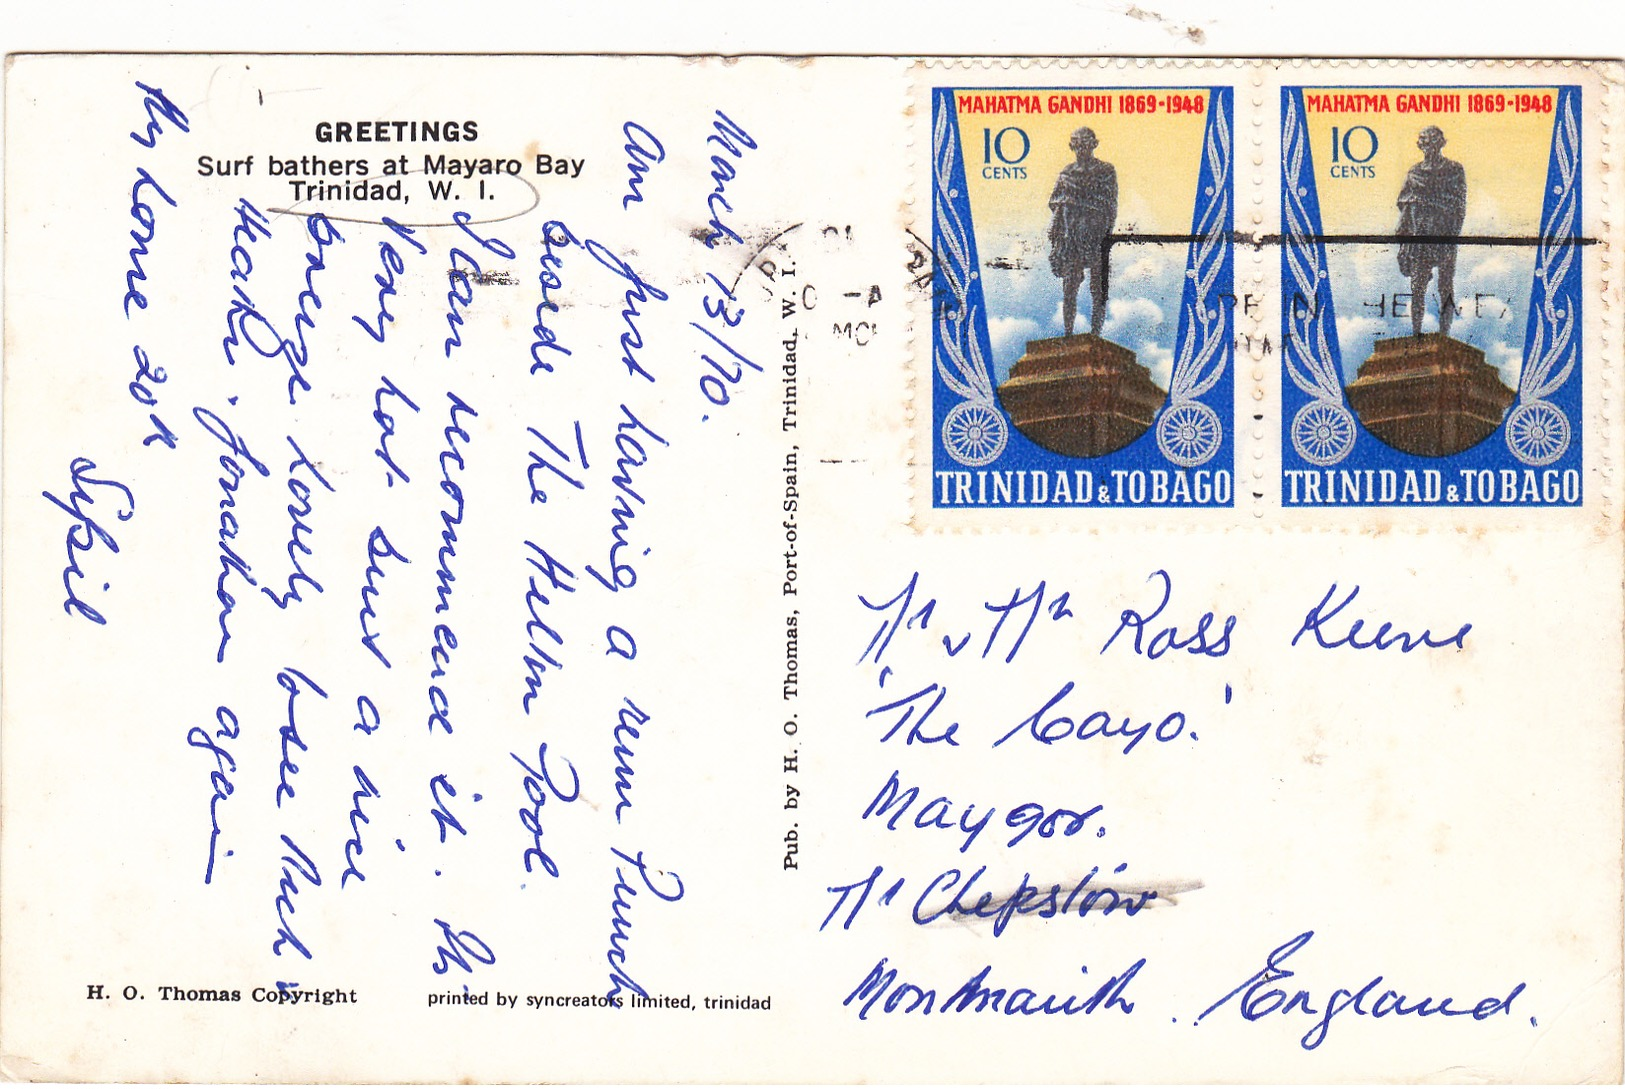 GREETINGS
Surf bathers at Mayaro Bay
Trinidad, W. I.
March 13/70.
Am just having a rum Punch
beside The Hilton Pool.
I can recommend it. Its
Very hot but a nice
breeze. Lovely to see
Heather & Jonathan again
My home 20th
Sybil
Pub. by H. O. Thomas, Port-of-Spain, Trinidad, W. I.
H. O. Thomas Copyright
printed by syncreators limited, trinidad
MAHATMA GANDHI 1869-1948
10
CENTS
TRINIDAD & TOBAGO
MAHATMA GANDHI 1869-1948
10
CENTS
TRINIDAD & TOBAGO
Mr & Mrs Ross Keene
'The Cayo.'
Maygor.
Nr Chepstow
Monmouth. England.